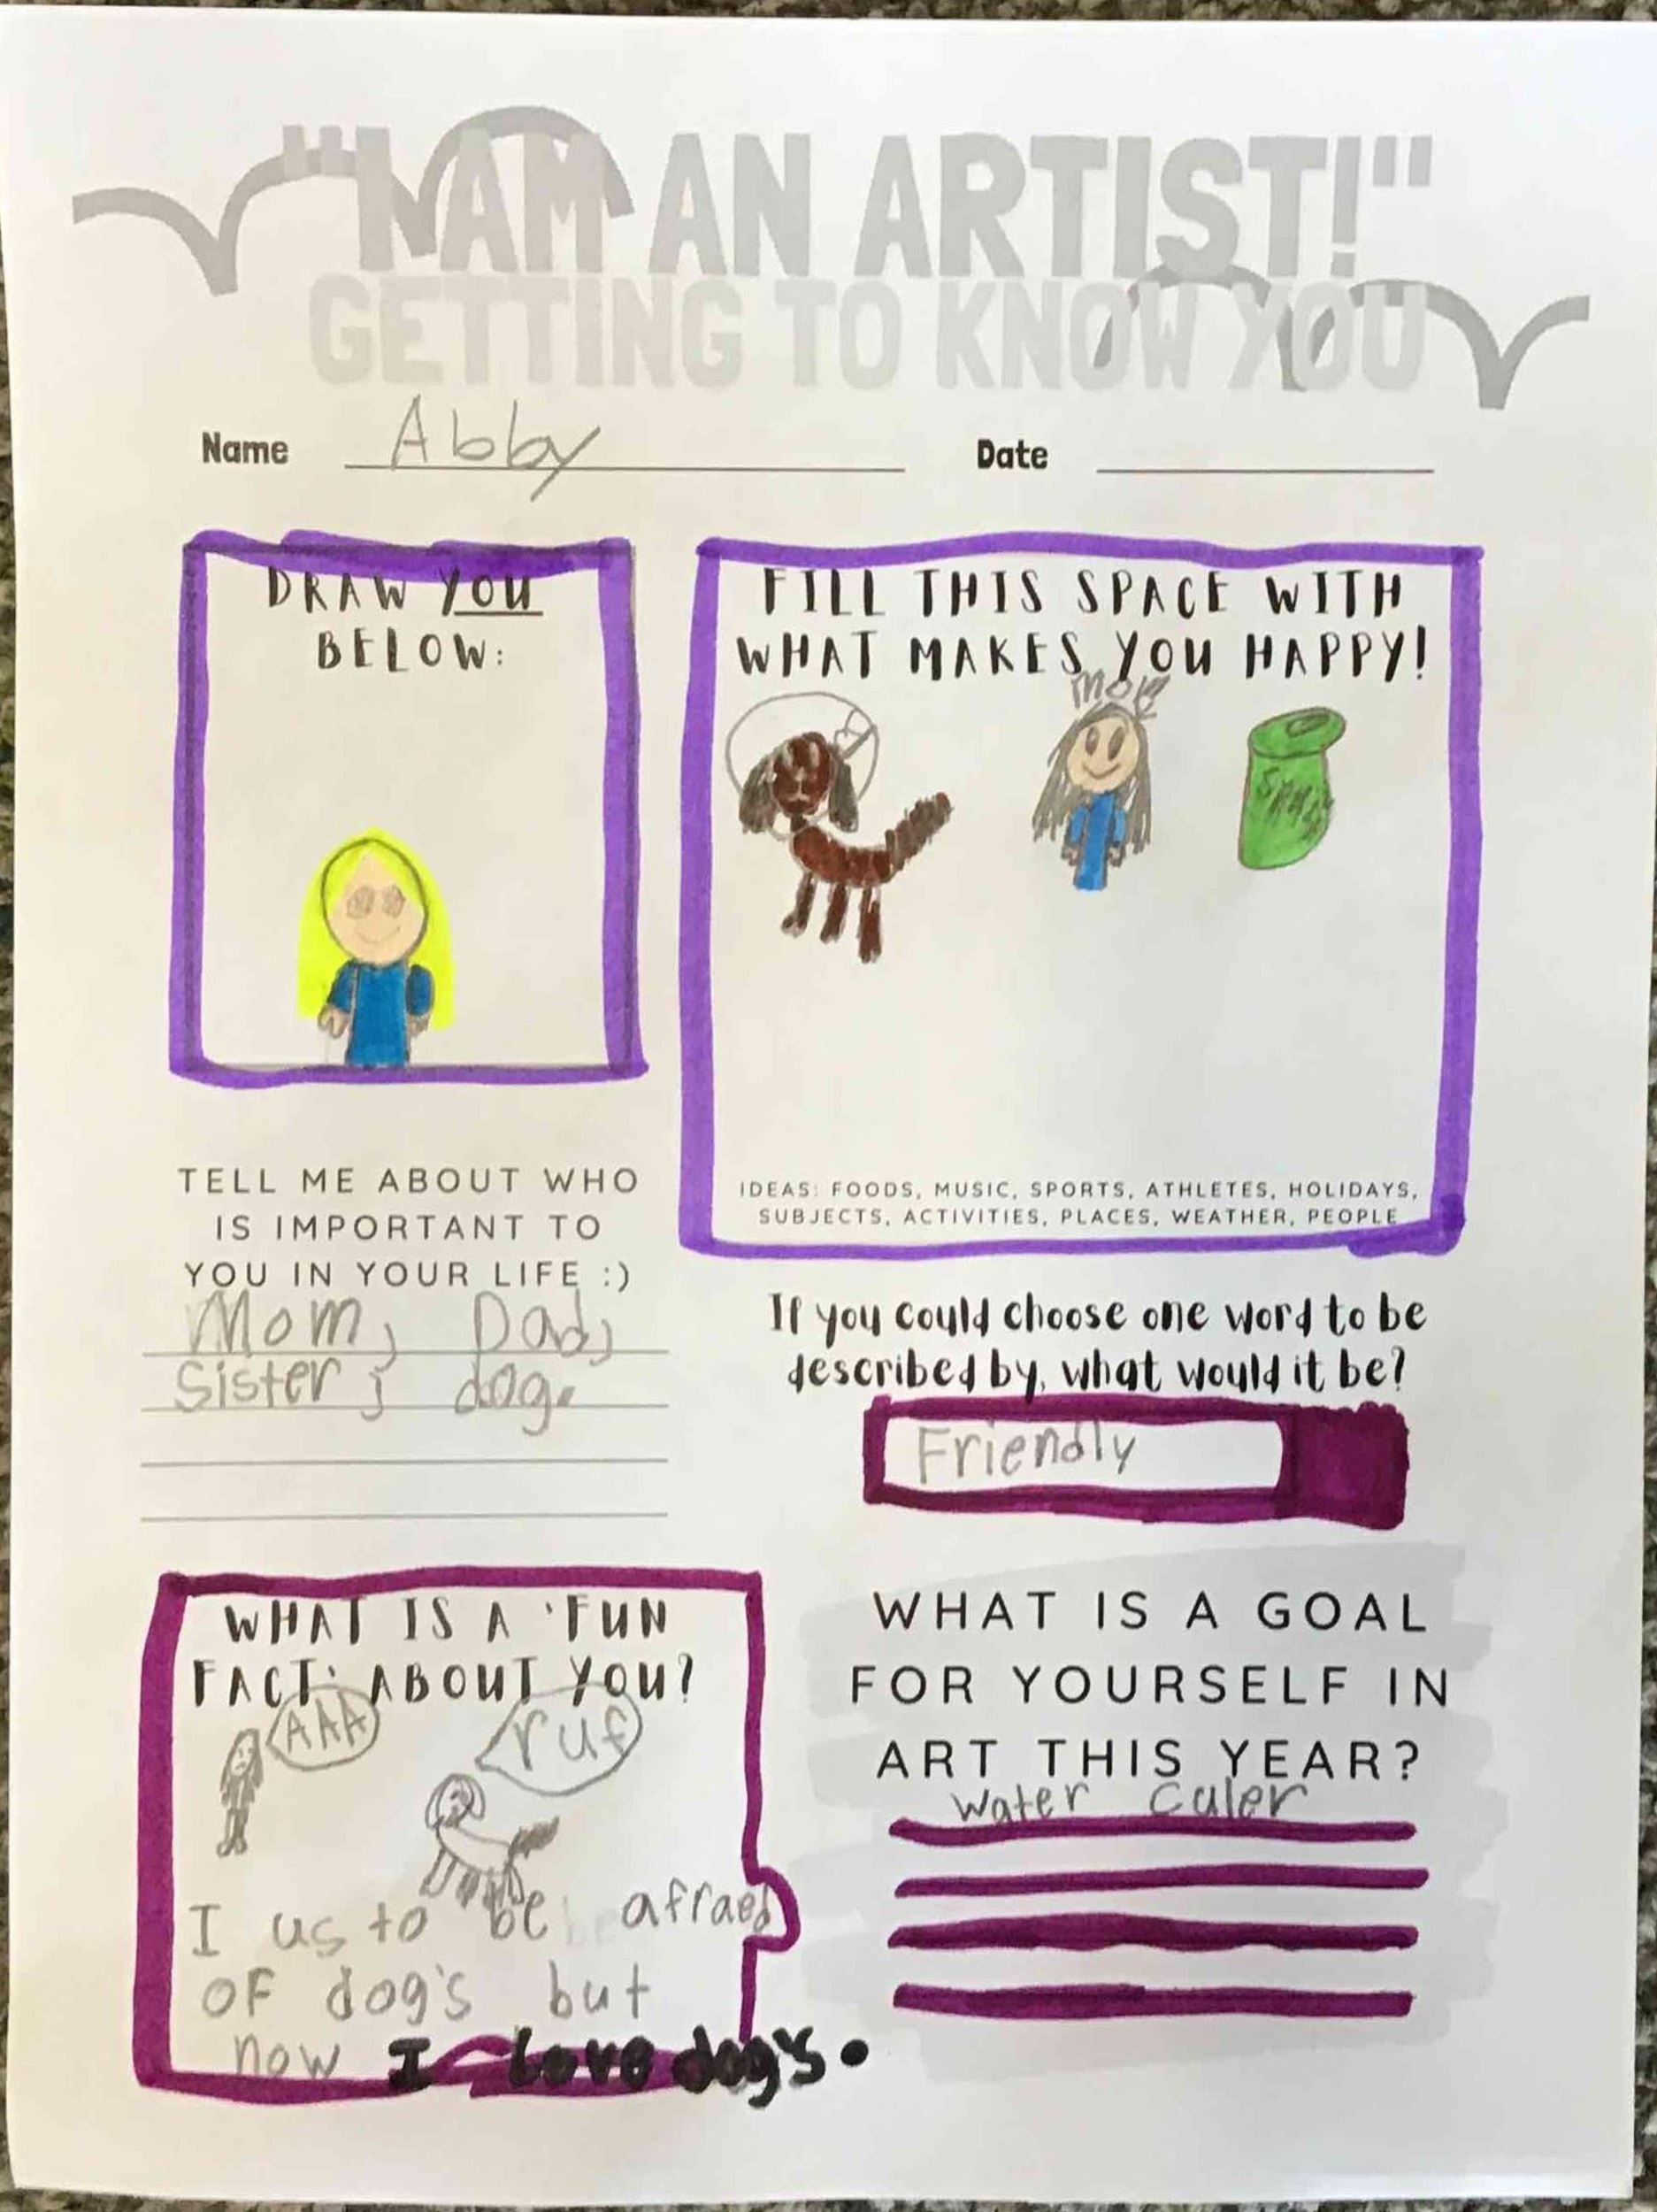 "I AM AN ARTIST!"
GETTING TO KNOW YOU
Name Abby Date
DRAW YOU
BELOW:
FILL THIS SPACE WITH
WHAT MAKES YOU HAPPY!
mom
IDEAS: FOODS, MUSIC, SPORTS, ATHLETES, HOLIDAYS,
SUBJECTS, ACTIVITIES, PLACES, WEATHER, PEOPLE
TELL ME ABOUT WHO
IS IMPORTANT TO
YOU IN YOUR LIFE :)
Mom, Dad,
Sister, dog.
If you could choose one word to be
described by, what would it be?
Friendly
WHAT IS A 'FUN
FACT' ABOUT YOU?
AAA
ruf
I us to be afraed
OF dog's but
now I love dog's.
WHAT IS A GOAL
FOR YOURSELF IN
ART THIS YEAR?
water culer